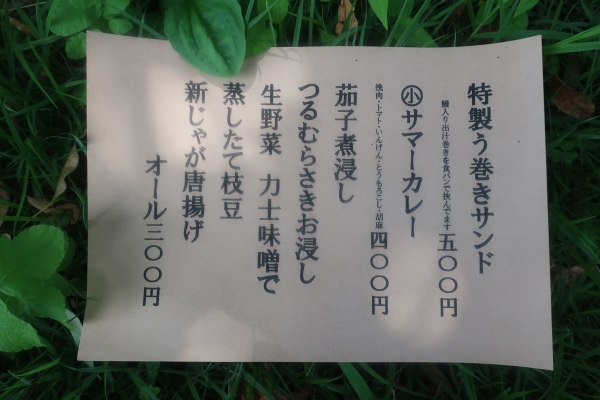 特製う巻きサンド
鰻入り出汁巻きを食パンで挟んでます 五〇〇円
㋛サマーカレー
挽肉・トマト・いんげん・とうもろこし・胡麻 四〇〇円
茄子煮浸し
つるむらさきお浸し
生野菜 力士味噌で
蒸したて枝豆
新じゃが唐揚げ
オール三〇〇円